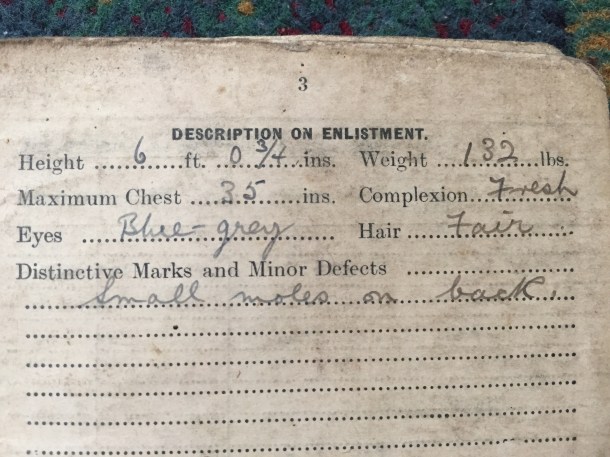 3
DESCRIPTION ON ENLISTMENT.
Height ......6......ft. ..0 3/4..ins. Weight .....132...lbs.
Maximum Chest ....35......ins. Complexion....Fresh
Eyes ......Blue-grey...... Hair ......Fair......
Distinctive Marks and Minor Defects ..........................
......Small moles on back.....